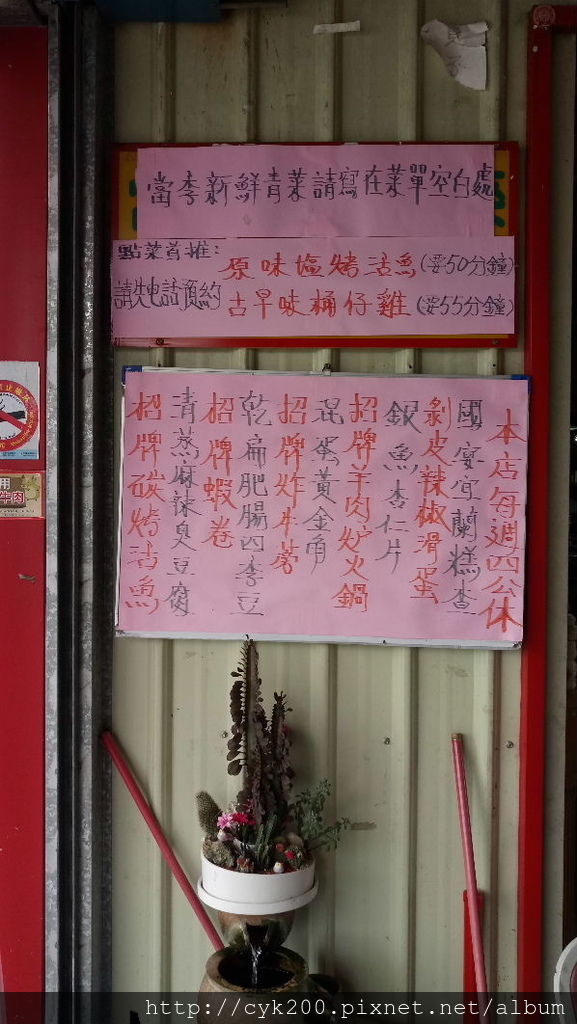 當季新鮮青菜請寫在菜單空白處
點菜首推:
請先電話預約
原味塩烤活魚(要50分鐘)
古早味桶仔雞(要55分鐘)
本店每週四公休
國宴宜蘭糕渣
剝皮辣椒滑蛋
銀魚杏仁片
招牌羊肉炉火鍋
混蛋黃金角
招牌炸牛蒡
乾扁肥腸四季豆
招牌蝦卷
清蒸麻辣臭豆腐
招牌碳烤活魚
用
牛肉
http://cyk200.pixnet.net/album